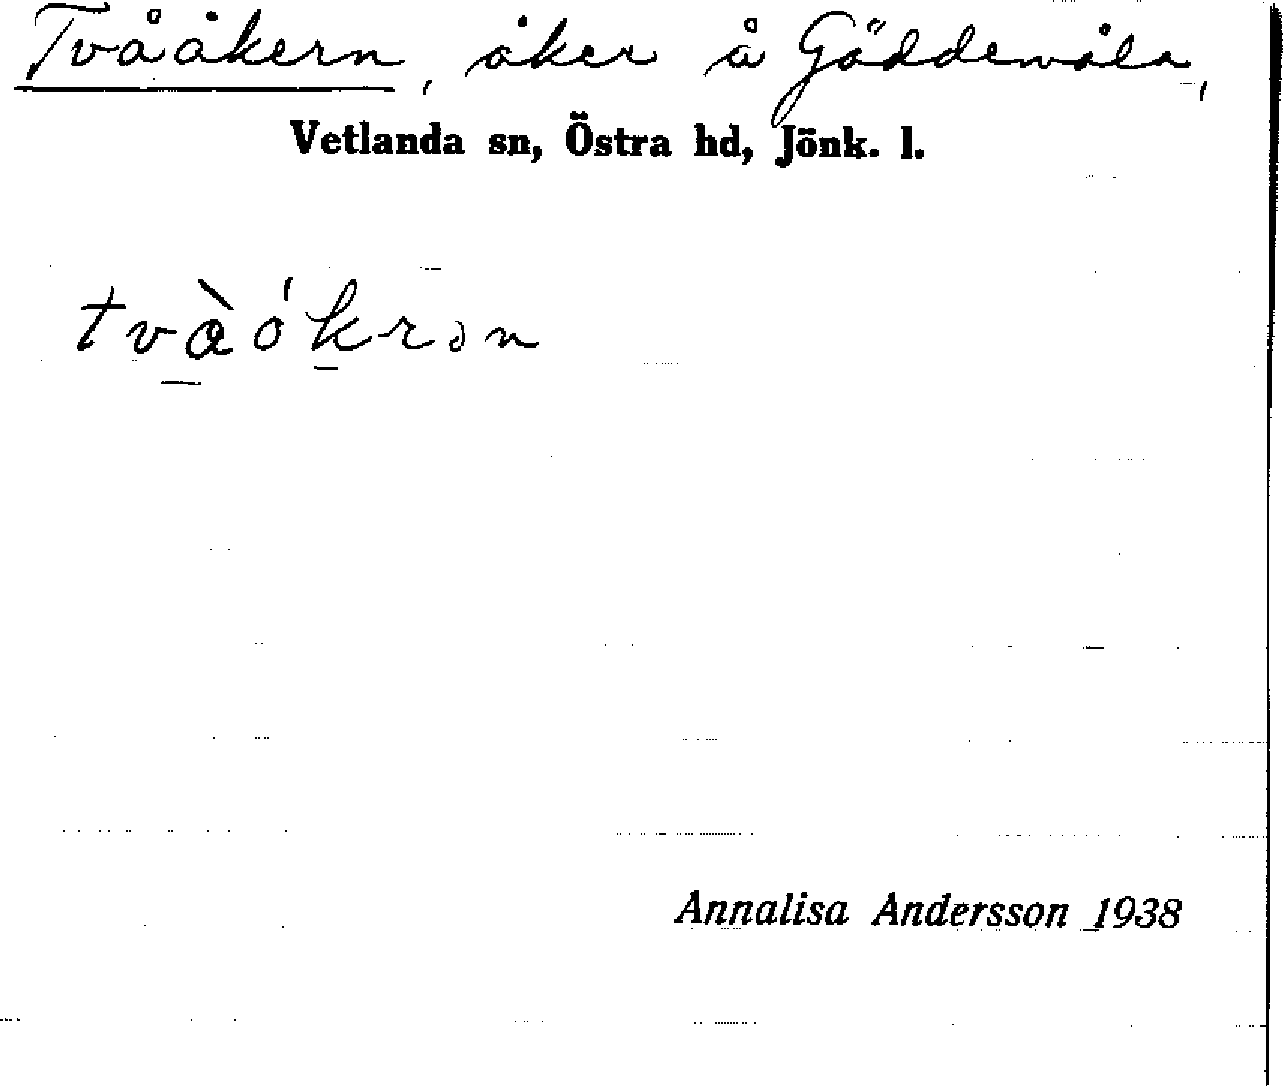 Tvååkern, åker å Gäddemåla,
Vetlanda sn, Östra hd, Jönk. l.
tvàókrən
Annalisa Andersson 1938